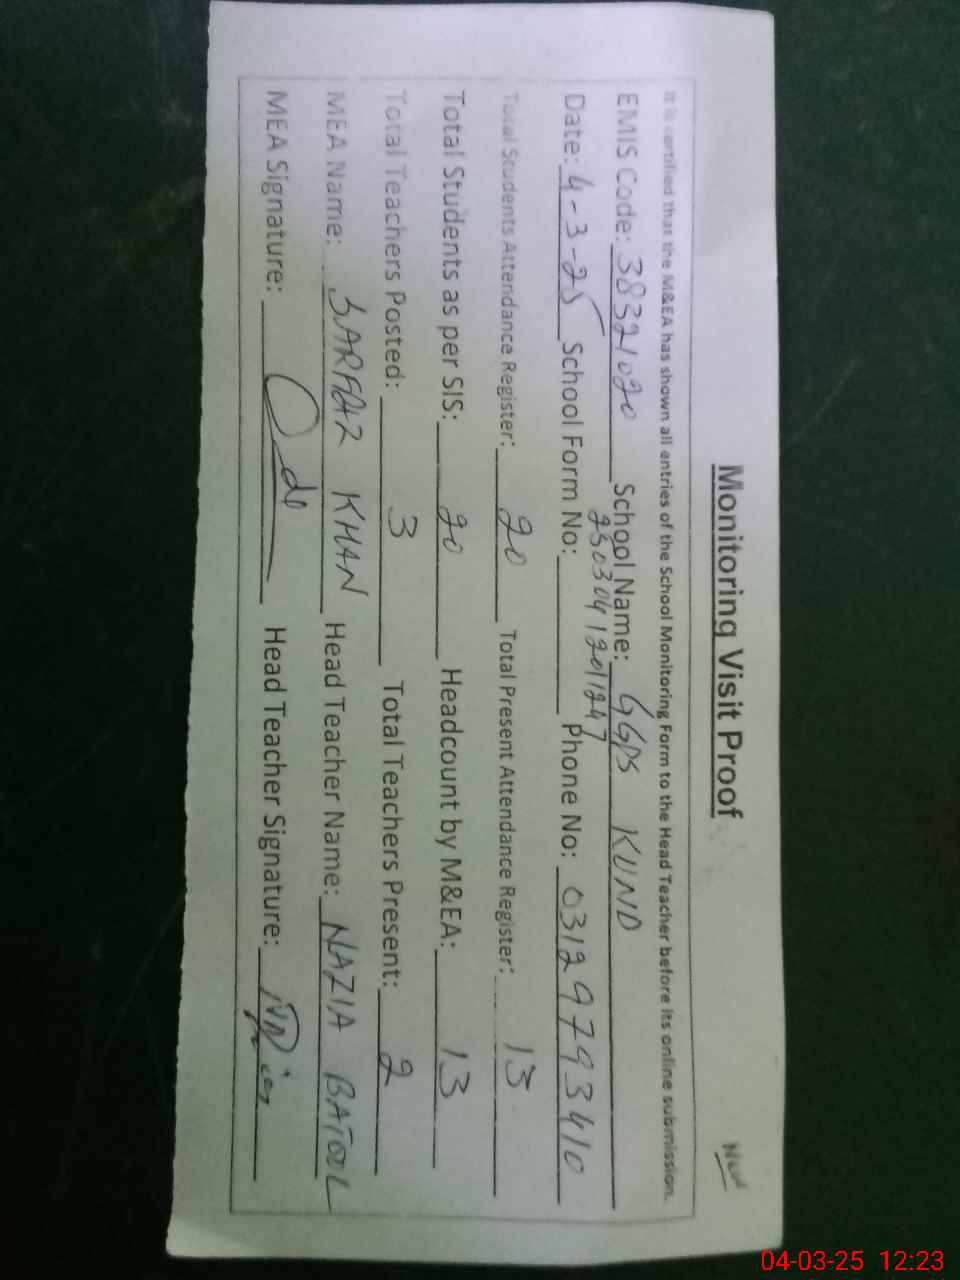 Monitoring Visit Proof
New
It is certified that the M&EA has shown all entries of the School Monitoring Form to the Head Teacher before its online submission.
EMIS Code: 38321020 School Name: GGPS KUND
Date: 4-3-25 School Form No: 25030412011247 Phone No: 03129793410
Total Students Attendance Register: 20 Total Present Attendance Register: 13
Total Students as per SIS: 20 Headcount by M&EA: 13
Total Teachers Posted: 3 Total Teachers Present: 2
MEA Name: SARFAZ KHAN Head Teacher Name: NAZIA BATOOL
MEA Signature: Head Teacher Signature:
04-03-25 12:23